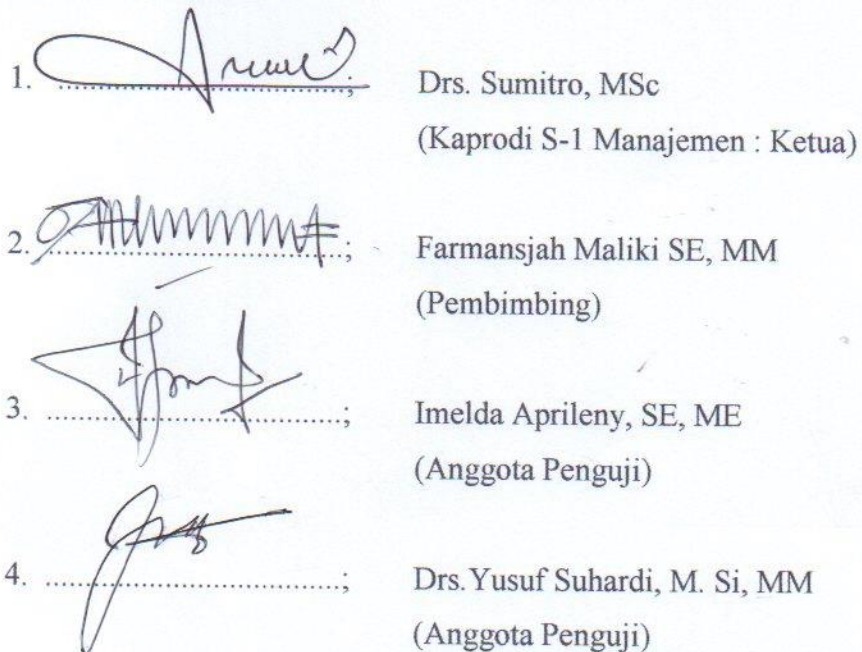 1. ..............................; Drs. Sumitro, MSc
(Kaprodi S-1 Manajemen : Ketua)
2. ..............................; Farmansjah Maliki SE, MM
(Pembimbing)
3. ..............................; Imelda Aprileny, SE, ME
(Anggota Penguji)
4. ..............................; Drs.Yusuf Suhardi, M. Si, MM
(Anggota Penguji)